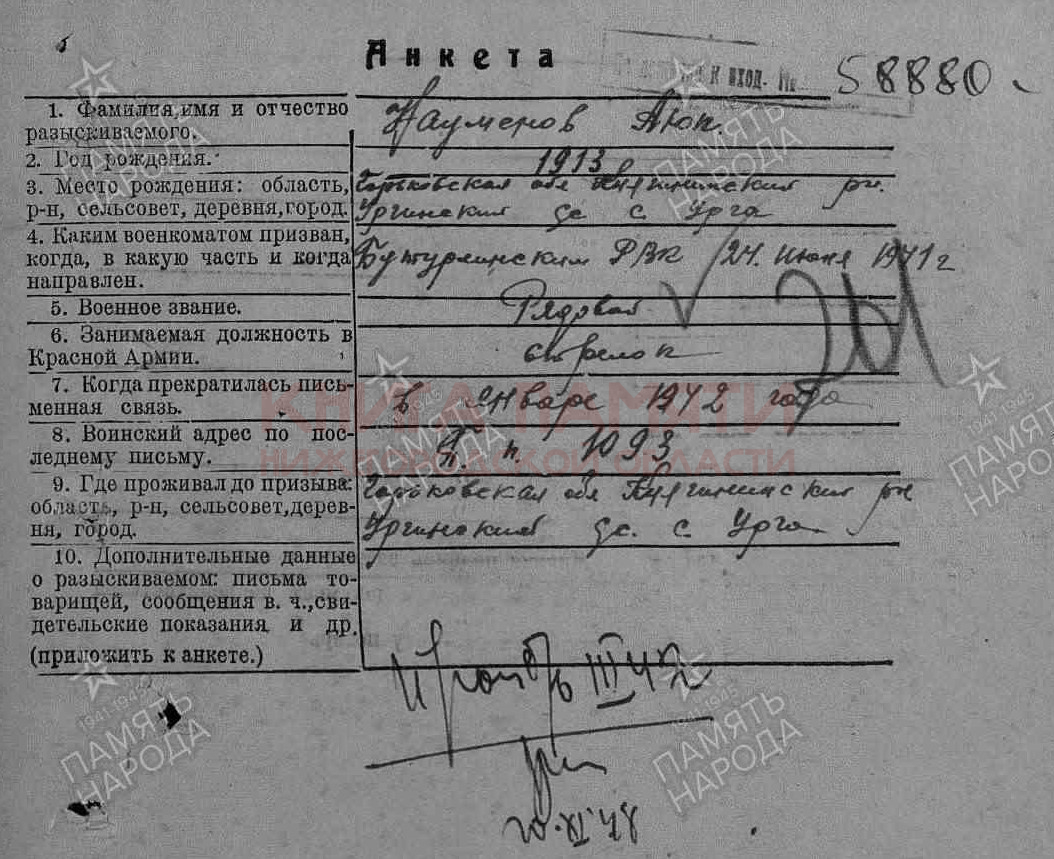 Анкета
к вход. №
58880
1. Фамилия, имя и отчество
разыскиваемого.
Наумеров Аюп.
2. Год рождения.
1913
3. Место рождения: область,
р-н, сельсовет, деревня, город.
Горьковская обл Княгининский рн.
Ургинский с/с с. Урга
4. Каким военкоматом призван,
когда, в какую часть и когда
направлен.
Бутурлинским РВК 24. июня 1941 г
5. Военное звание.
Рядовой
6. Занимаемая должность в
Красной Армии.
стрелок
7. Когда прекратилась пись-
менная связь.
в январе 1942 года
8. Воинский адрес по пос-
леднему письму.
п. п. 1093
9. Где проживал до призыва:
область, р-н, сельсовет, дерев-
ня, город.
Горьковская обл Княгининский рн
Ургинский с/с. с. Урга
10. Дополнительные данные
о разыскиваемом: письма то-
варищей, сообщения в. ч., сви-
детельские показания и др.
(приложить к анкете.)
III 42
20.XI.48
КНИГА ПАМЯТИ
НИЖЕГОРОДСКОЙ ОБЛАСТИ
1941 1945
ПАМЯТЬ
НАРОДА